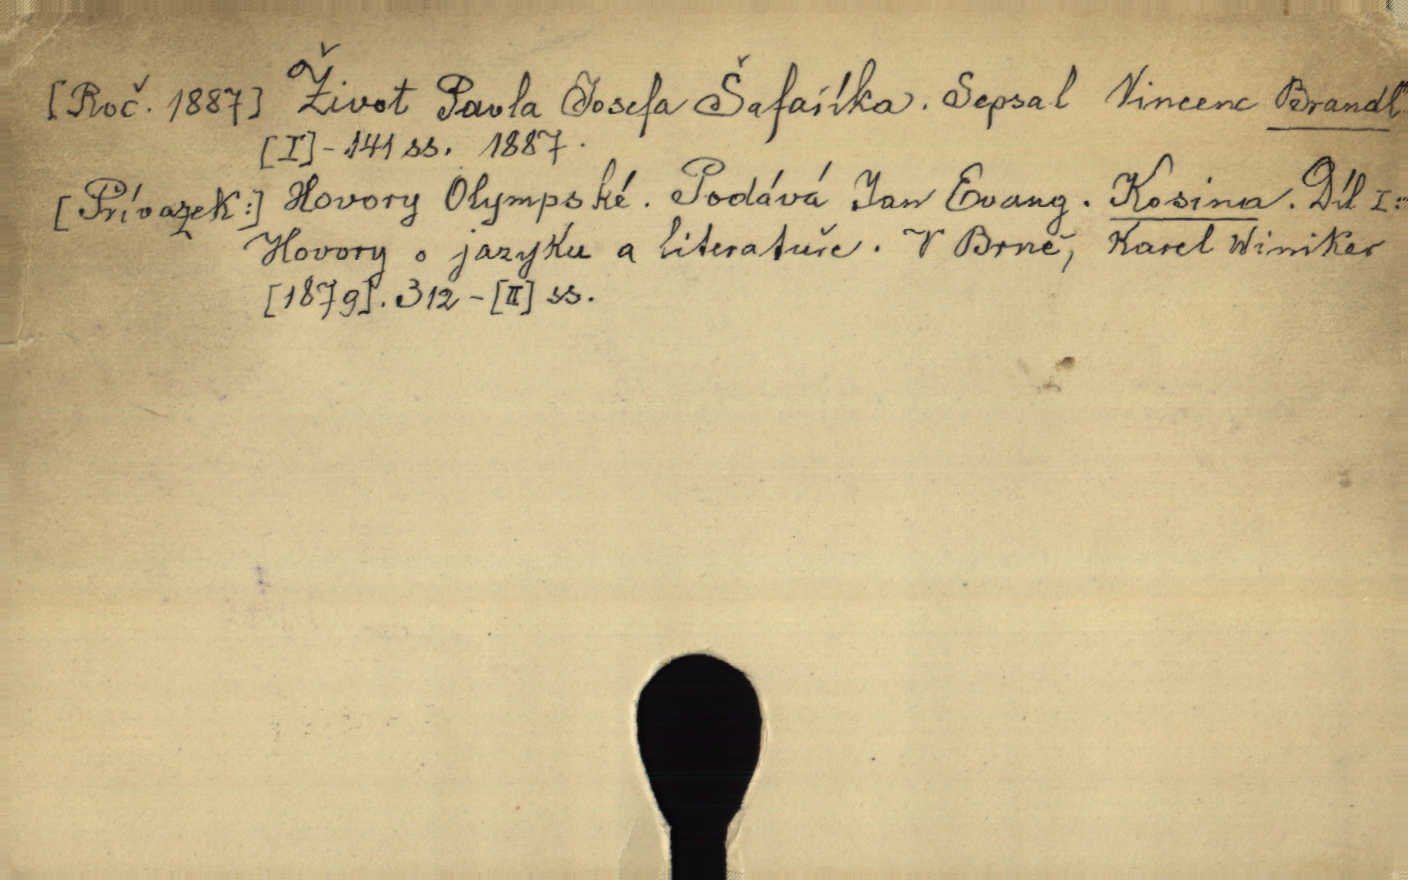 [Roč. 1887] Život Pavla Josefa Šafaříka. Sepsal Vincenc Brandl.
[I]-141 ss. 1887.
[Přívazek:] Hovory Olympské. Podává Jan Evang. Kosina. Díl I:
Hovory o jazyku a literatuře. V Brně, Karel Winiker
[1879]. 312-[II] ss.